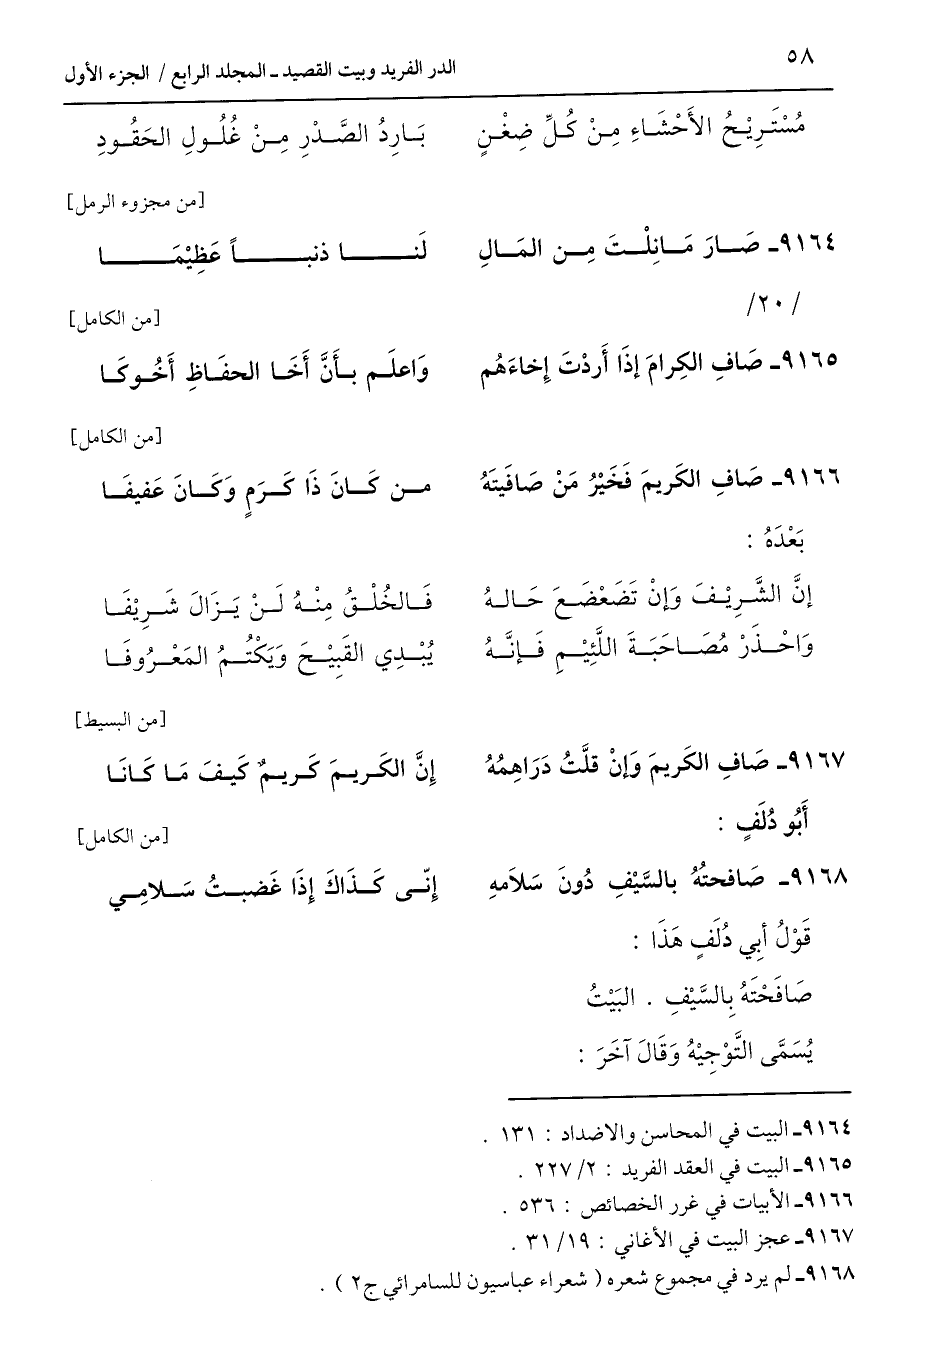 ٥٨
الدر الفريد وبيت القصيد ـ المجلد الرابع / الجزء الأول
مُسْتَرِيْحُ الأَحْشَاءِ مِنْ كُلِّ ضِغْنٍ بَارِدُ الصَّدْرِ مِنْ غُلُولِ الحَقُودِ
[من مجزوء الرمل]
٩١٦٤ـ صَارَ مَانِلْتَ مِن المَالِ لَنا ذنباً عَظِيْمَا
/٢٠/
[من الكامل]
٩١٦٥ـ صَافِ الكِرامَ إذَا أَردْتَ إخاءَهُم وَاعلَم بأَنَّ أَخَا الحفَاظِ أَخُوكَا
[من الكامل]
٩١٦٦ـ صَافِ الكَريمَ فَخَيْرُ مَنْ صَافَيتَهُ من كَانَ ذَا كَرَمٍ وَكَانَ عَفيفَا
بَعْدَهُ :
إنَّ الشَّرِيْفَ وَإنْ تَضَعْضَعَ حَالهُ فَالخُلْقُ مِنْهُ لَنْ يَزَالَ شَرِيْفَا
وَاحْذَرْ مُصَاحَبَةَ اللَّئِيْمِ فَإنَّهُ يُبْدِي القَبِيْحَ وَيَكْتُمُ المَعْرُوفَا
[من البسيط]
٩١٦٧ـ صَافِ الكَريمَ وَإنْ قلَّتْ دَرَاهِمُهُ إنَّ الكَريمَ كَريمٌ كَيفَ مَا كَانَا
أَبُو دُلَفٍ :
[من الكامل]
٩١٦٨ـ صَافحتُهُ بالسَّيْفِ دُونَ سَلاَمهِ إنّى كَذَاكَ إذَا غَضبتُ سَلامِي
قَوْلُ أبِي دُلَفٍ هَذَا :
صَافَحْتَهُ بِالسَّيْفِ . البَيْتُ
يُسَمَّى التَّوْجِيْهُ وَقَالَ آخَرَ :
٩١٦٤ـ البيت في المحاسن والاضداد : ١٣١ .
٩١٦٥ـ البيت في العقد الفريد : ٢/ ٢٢٧ .
٩١٦٦ـ الأبيات في غرر الخصائص : ٥٣٦ .
٩١٦٧ـ عجز البيت في الأغاني : ١٩/ ٣١ .
٩١٦٨ـ لم يرد في مجموع شعره ( شعراء عباسيون للسامرائي ج٢ ) .